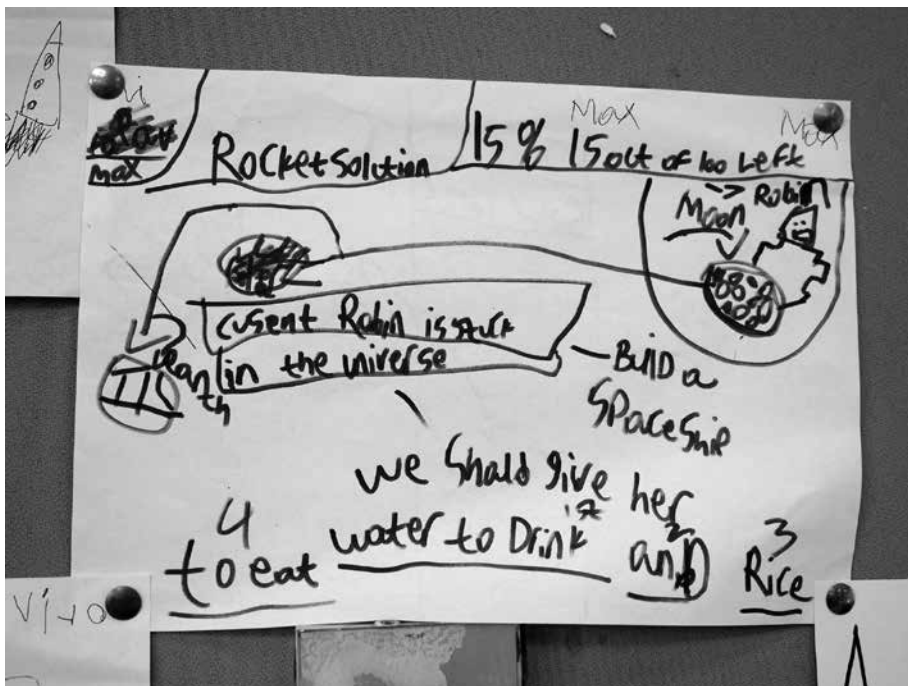 max
Rocket Solution
15% 15 out of 100 Left
Max
Max
Robin
Moon
cusent Robin is stuck
in the universe
ean
th
Build a
SPaceShip
we Shald give her
4
to eat
water to Drink 1st
2
and
3
Rice
Viro